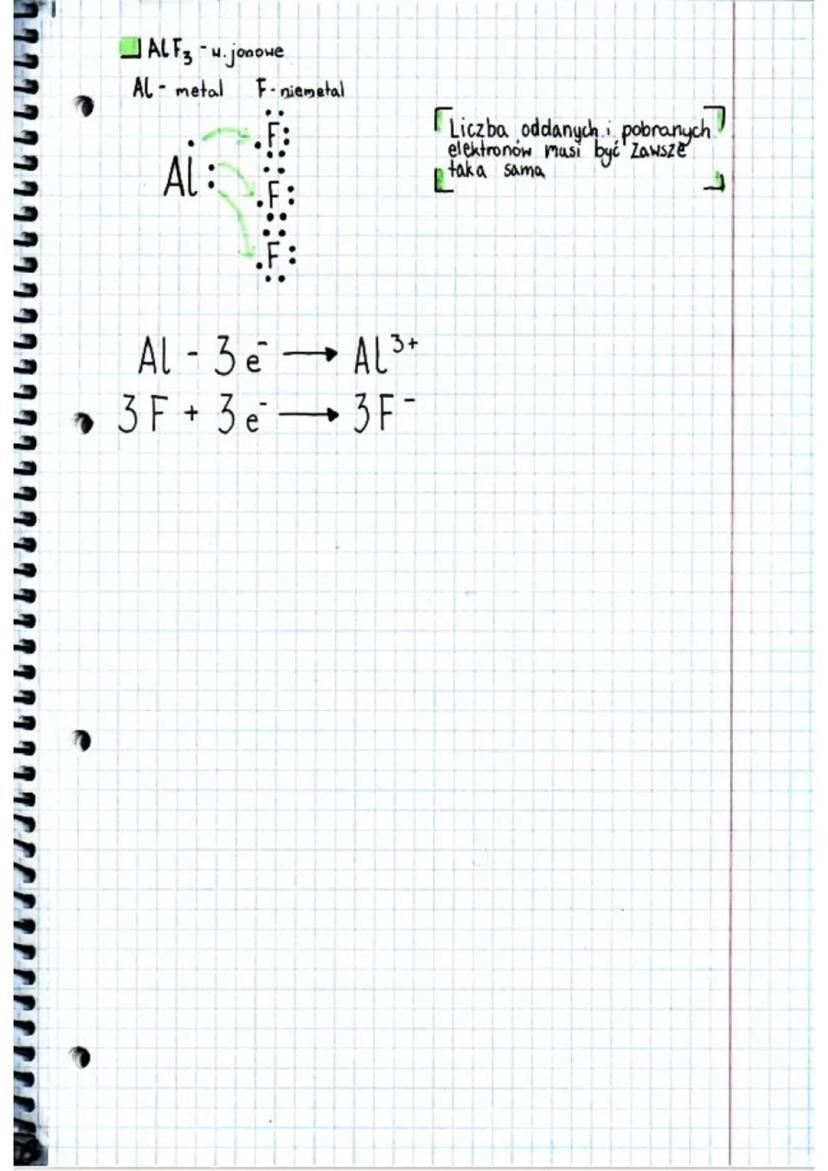 AlF₃ - w. jonowe
Al - metal F - niemetal
Liczba oddanych i pobranych
elektronów musi być zawsze
taka sama
Al
F
F
F
Al - 3e⁻ → Al³⁺
3F + 3e⁻ → 3F⁻